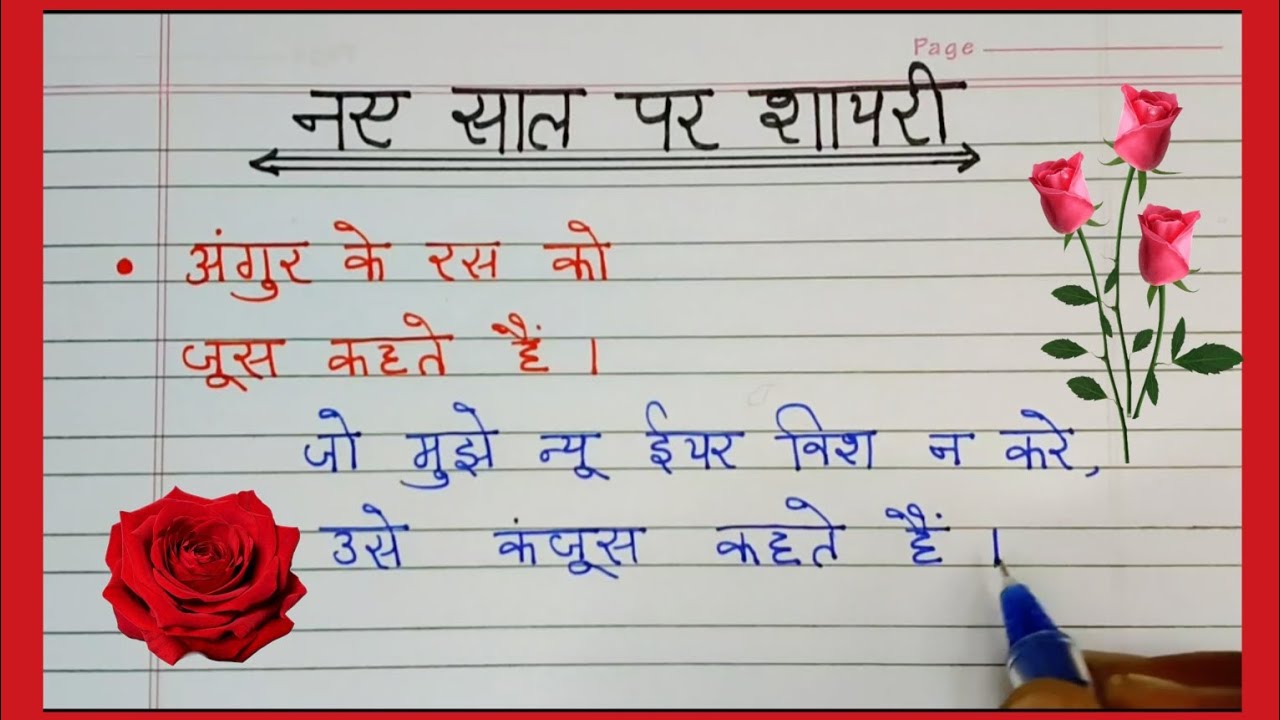 Page
नए साल पर शायरी
• अंगुर के रस को
जूस कहते हैं ।
जो मुझे न्यू ईयर विश न करे,
उसे कंजूस कहते हैं ।